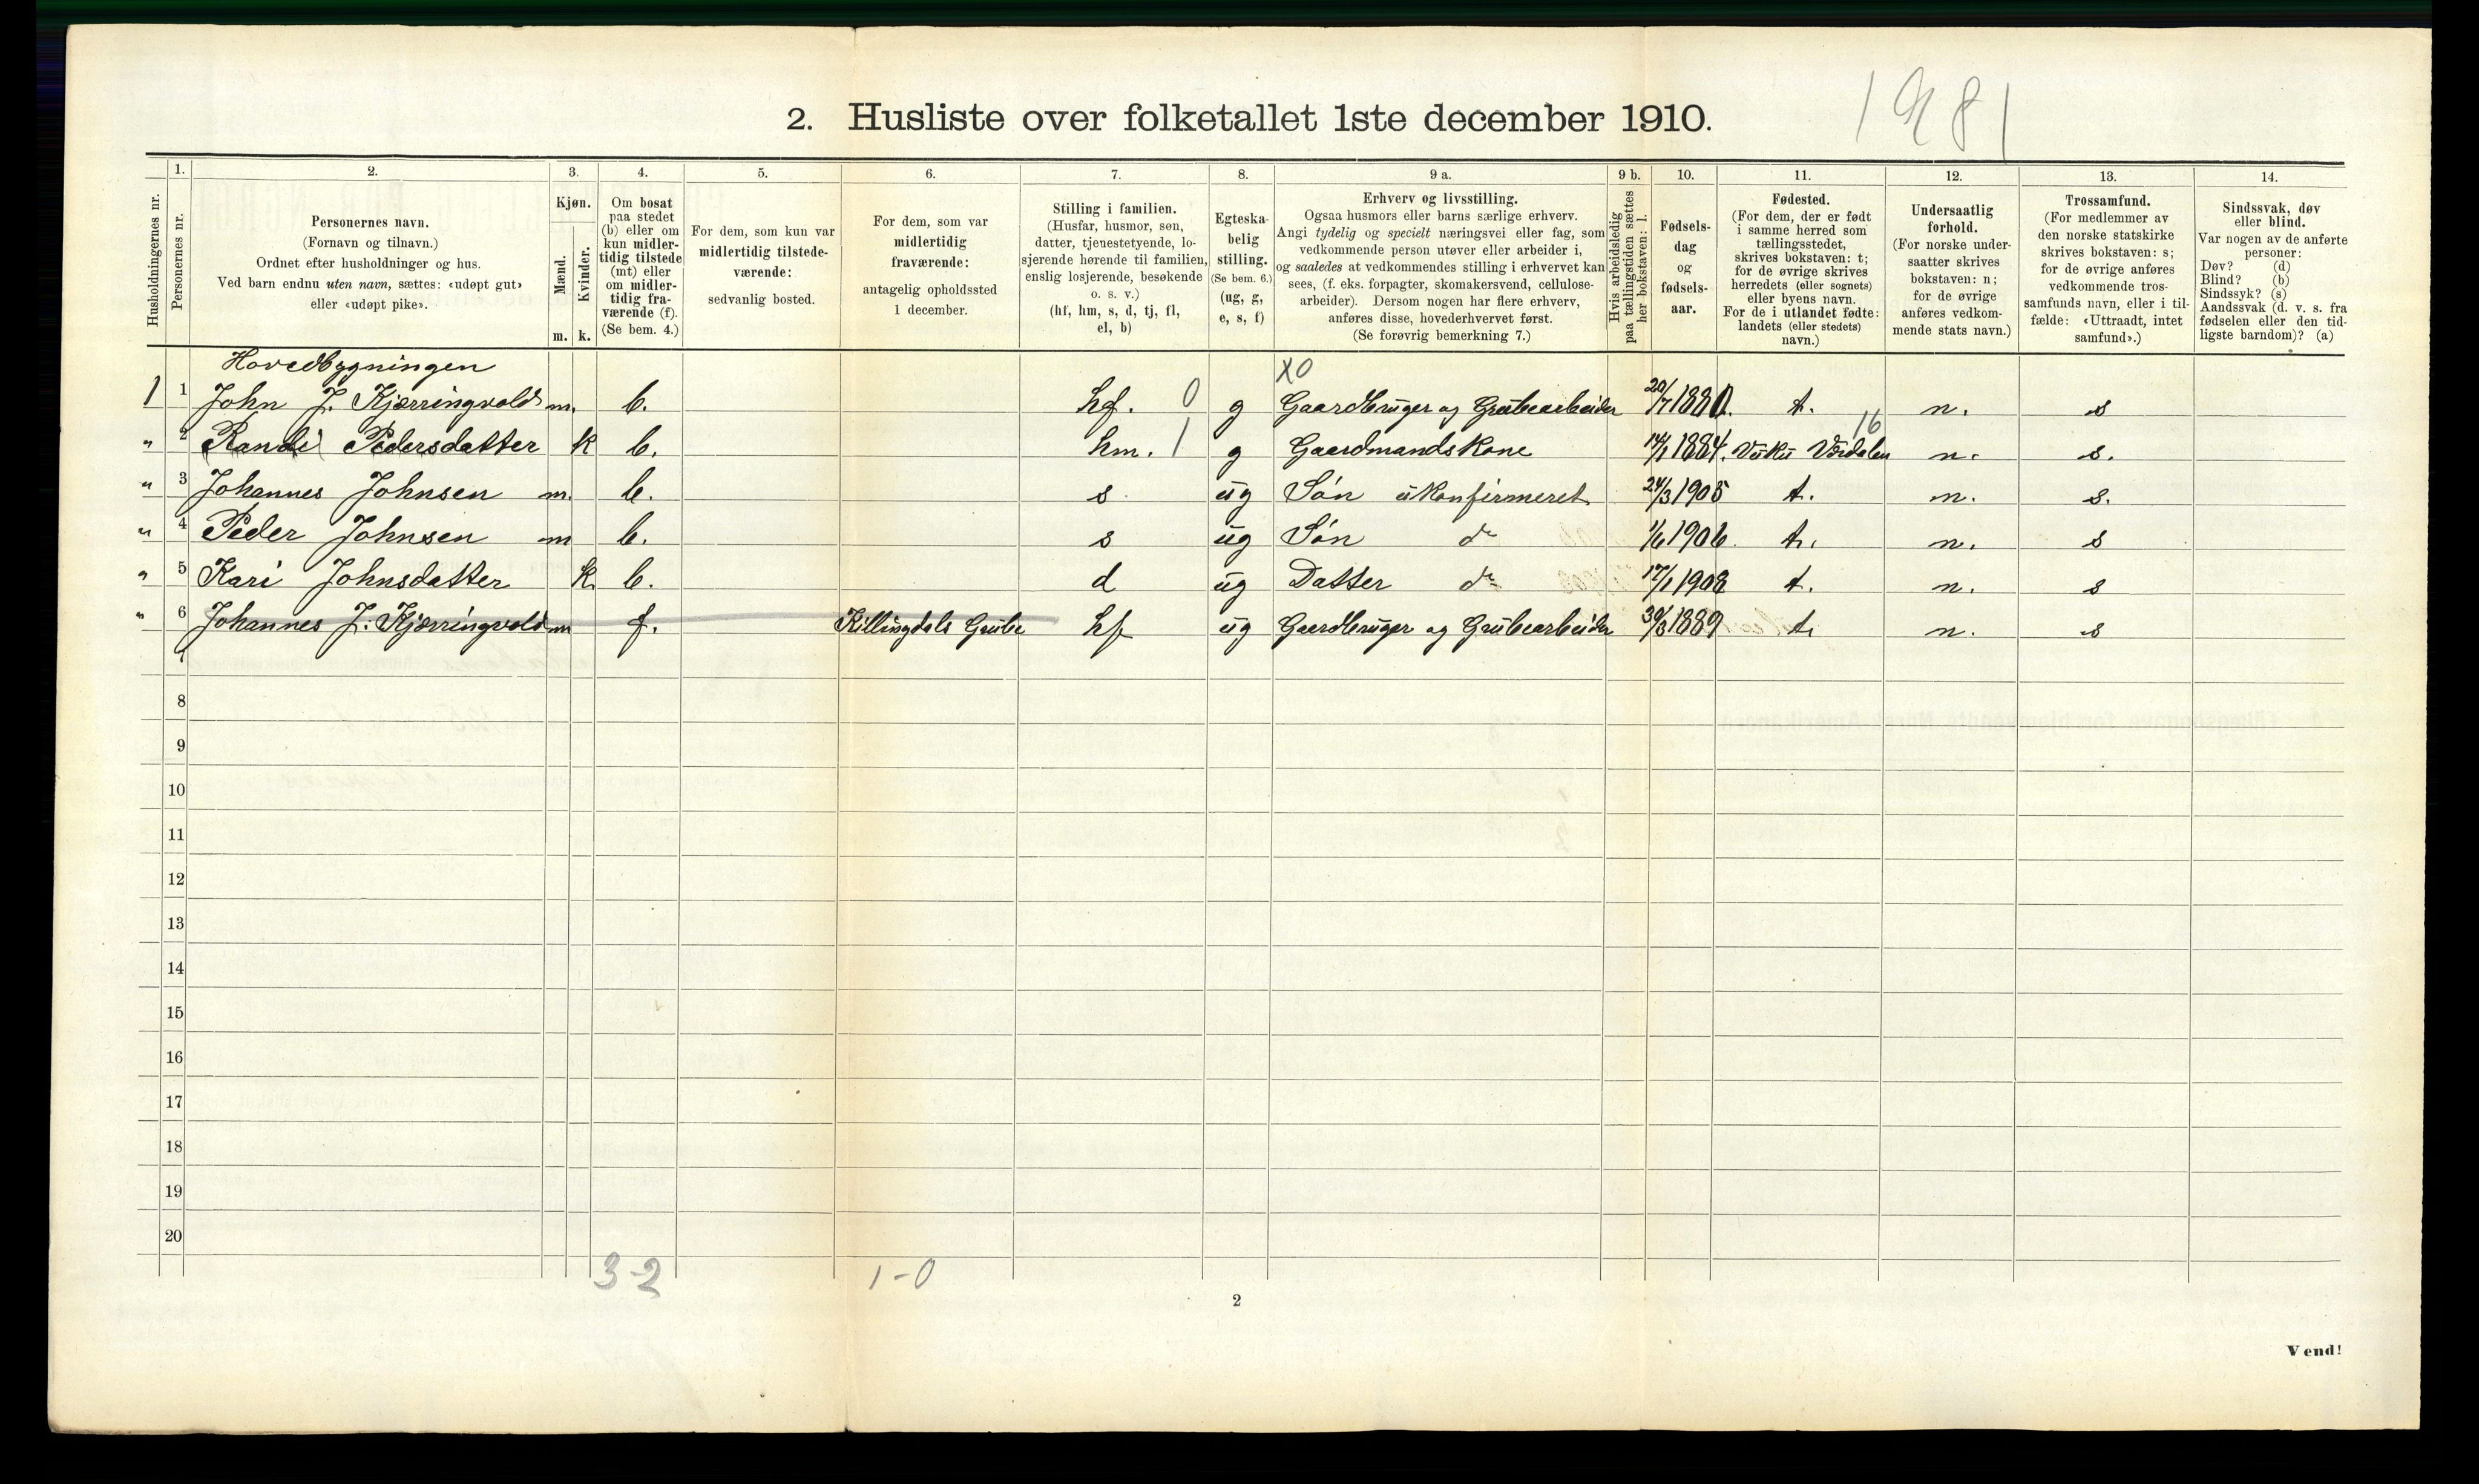 2. Husliste over folketallet 1ste december 1910.
1981
Husholdningernes nr.
1.
Personernes nr.
2.
Personernes navn.
(Fornavn og tilnavn.)
Ordnet efter husholdninger og hus.
Ved barn endnu uten navn, sættes: «udøpt gut»
eller «udøpt pike».
3.
Kjøn.
Mænd.
Kvinder.
m. k.
4.
Om bosat
paa stedet
(b) eller om
kun midler-
tidig tilstede
(mt) eller
om midler-
tidig fra-
værende (f).
(Se bem. 4.)
5.
For dem, som kun var
midlertidig tilstede-
værende:
sedvanlig bosted.
6.
For dem, som var
midlertidig
fraværende:
antagelig opholdssted
1 december.
7.
Stilling i familien.
(Husfar, husmor, søn,
datter, tjenestetyende, lo-
sjerende hørende til familien,
enslig losjerende, besøkende
o. s. v.)
(hf, hm, s, d, tj, fl,
el, b)
8.
Egteska-
belig
stilling.
(Se bem. 6.)
(ug, g,
e, s, f)
9 a.
Erhverv og livsstilling.
Ogsaa husmors eller barns særlige erhverv.
Angi tydelig og specielt næringsvei eller fag, som
vedkommende person utøver eller arbeider i,
og saaledes at vedkommendes stilling i erhvervet kan
sees, (f. eks. forpagter, skomakersvend, cellulose-
arbeider). Dersom nogen har flere erhverv,
anføres disse, hovederhvervet først.
(Se forøvrig bemerkning 7.)
9 b.
Hvis arbeidsledig
paa tællingstiden sættes
her bokstaven: l.
10.
Fødsels-
dag
og
fødsels-
aar.
11.
Fødested.
(For dem, der er født
i samme herred som
tællingsstedet,
skrives bokstaven: t;
for de øvrige skrives
herredets (eller sognets)
eller byens navn.
For de i utlandet fødte:
landets (eller stedets)
navn.)
12.
Undersaatlig
forhold.
(For norske under-
saatter skrives
bokstaven: n;
for de øvrige
anføres vedkom-
mende stats navn.)
13.
Trossamfund.
(For medlemmer av
den norske statskirke
skrives bokstaven: s;
for de øvrige anføres
vedkommende tros-
samfunds navn, eller i til-
fælde: «Uttraadt, intet
samfund».)
14.
Sindssvak, døv
eller blind.
Var nogen av de anførte
personer:
Døv? (d)
Blind? (b)
Sindssyk? (s)
Aandssvak (d. v. s. fra
fødselen eller den tid-
ligste barndom)? (a)
Hovedbygningen
X0
1 1 John J. Kjørringvold m. b. hf. 0 g Gaardbruger og Grubearbeider 20/7 1880. t. n. s
16
" 2 Randi Pedersdatter k b. hm. 1 g Gaardmandskone 14/1 1884. Vuku Værdalen n. s.
" 3 Johannes Johnsen m. b. s ug Søn ukonfirmeret 24/3 1905 t. n. s.
" 4 Peder Johnsen m b. s ug Søn do 1/6 1906 t. n. s
" 5 Kari Johnsdatter k b. d ug Datter do 17/1 1908 t. n. s
" 6 Johannes J. Kjørringvold m f. Killingdals Grube hf ug Gaardbruger og Grubearbeider 30/3 1889 t. n. s
7
8
9
10
11
12
13
14
15
16
17
18
19
20
3-2 1-0
2
Vend!